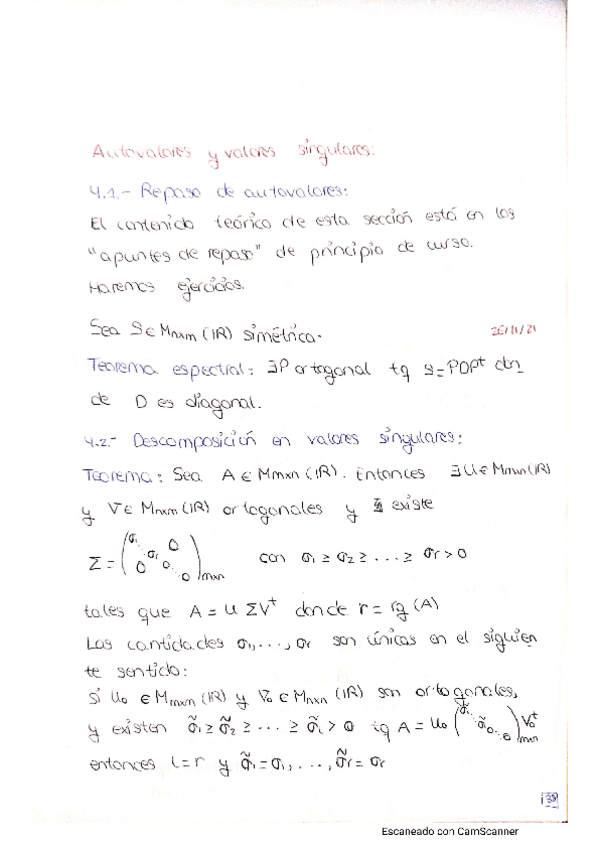 Autovalores y valores singulares:
4.1.- Repaso de autovalores:
El contenido teórico de esta sección está en los
"apuntes de repaso" de principio de curso.
Haremos ejercicios.
Sea S∈Mnxn (IR) simétrica.
Teorema espectral: ∃P ortogonal tq S=PDPᵗ don
de D es diagonal.
4.2.- Descomposición en valores singulares:
Teorema: Sea A∈Mmxn (IR). Entonces ∃U∈Mmxm(IR)
y V∈Mnxn (IR) ortogonales y existe
Σ = (σ₁ σr 0 0 0 0)mxn con σ₁ ≥ σ₂ ≥ ... ≥ σr > 0
tales que A = U ΣVᵗ donde r = rg (A)
Las cantidades σ₁, ..., σr son únicas en el siguien
te sentido:
Si U₀ ∈Mmxm (IR) y V₀∈Mnxn (IR) son ortogonales,
y existen σ̃₁ ≥ σ̃₂ ≥ ... ≥ σ̃l > 0 tq A = U₀ (σ̃₁ σ̃l 0 0)mxn V₀ᵗ
entonces l=r y σ̃₁=σ₁, ..., σ̃r=σr
Escaneado con CamScanner